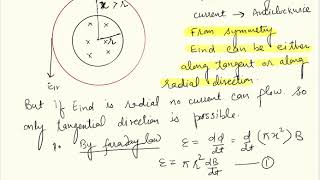 current → Anticlockwise
x > r
From symmetry
Eind can be either
along tangent or along
radial direction.
But if Eind is radial no current can flow. So
only tangential direction is possible.
By faraday law
ε = dφ/dt = d/dt (πx²) B
ε = πr² dB/dt — ①